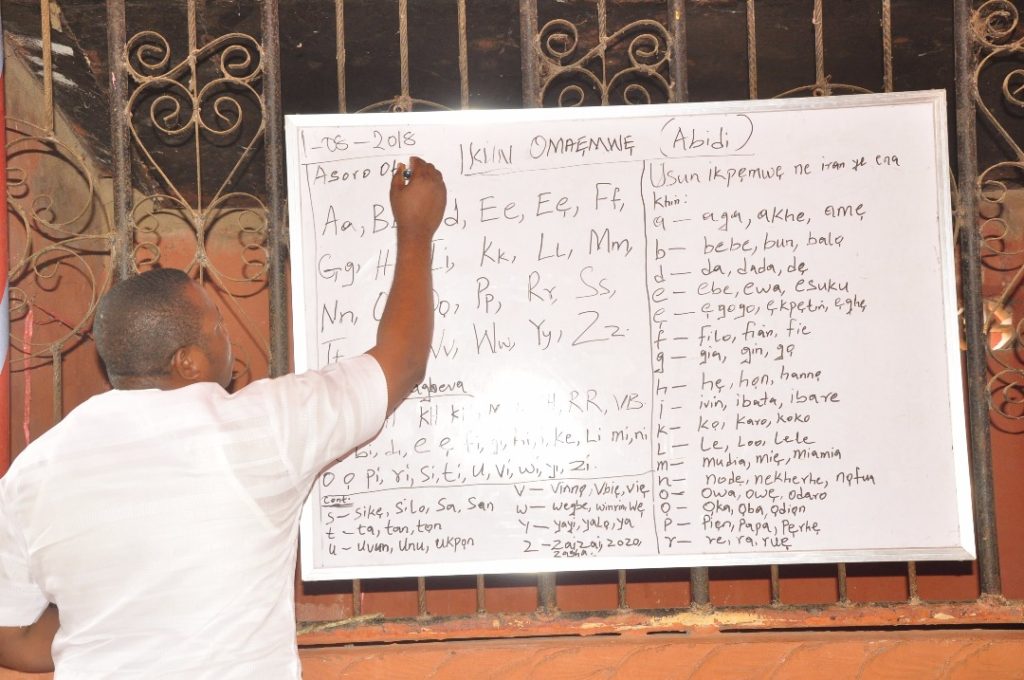 1-08-2018
IKIIN OMAEMWẸ (Abidi)
Asoro
Aa, d, Ee, Eẹ, Ff,
Gg, H Ii, Kk, LL, Mm,
Nn, O Pp, Rr, Ss,
Vv, Ww, Yy, Zz.
agbeva
KH RR, VB.
bi, di, e ẹ fi, gi, hi, i, ke, Li mi, ni
O ọ pi, ri, Si, ti, u, vi, wi, yi, zi.
Cont:
S - Sikẹ, Silo, Sa, Sạn
t - ta, tan, tọn
u - uvun, unu, ukpọn
V - Vinnọ, Vbiẹ, viẹ
w - wegbe, winria, wẹ
Y - yayi, yalọ, ya
Z - Zaizai, zozo, zasha.
Usun ikpẹmwẹ ne iran ye ena
khin:
a - aga, akhe, amẹ
b - bebe, bun, balọ
d - da, dada, dẹ
e - ebe, ewa, esuku
ẹ - ẹgogo, ẹkpẹtin, ẹghẹ
f - filo, fian, fie
g - gia, gin, gọ
h - hẹ, họn, hannọ
i - ivin, ibata, ibare
k - kọ, karo, koko
L - Le, Loo, Lele
m - mudia, miẹ, miamia
n - node, nekherhe, nọfua
O - Owa, owẹ, odaro
Ọ - Ọka, Ọba, ọdiọn
P - Piẹn, Papa, Pẹrhẹ
r - re, ra, ruẹ